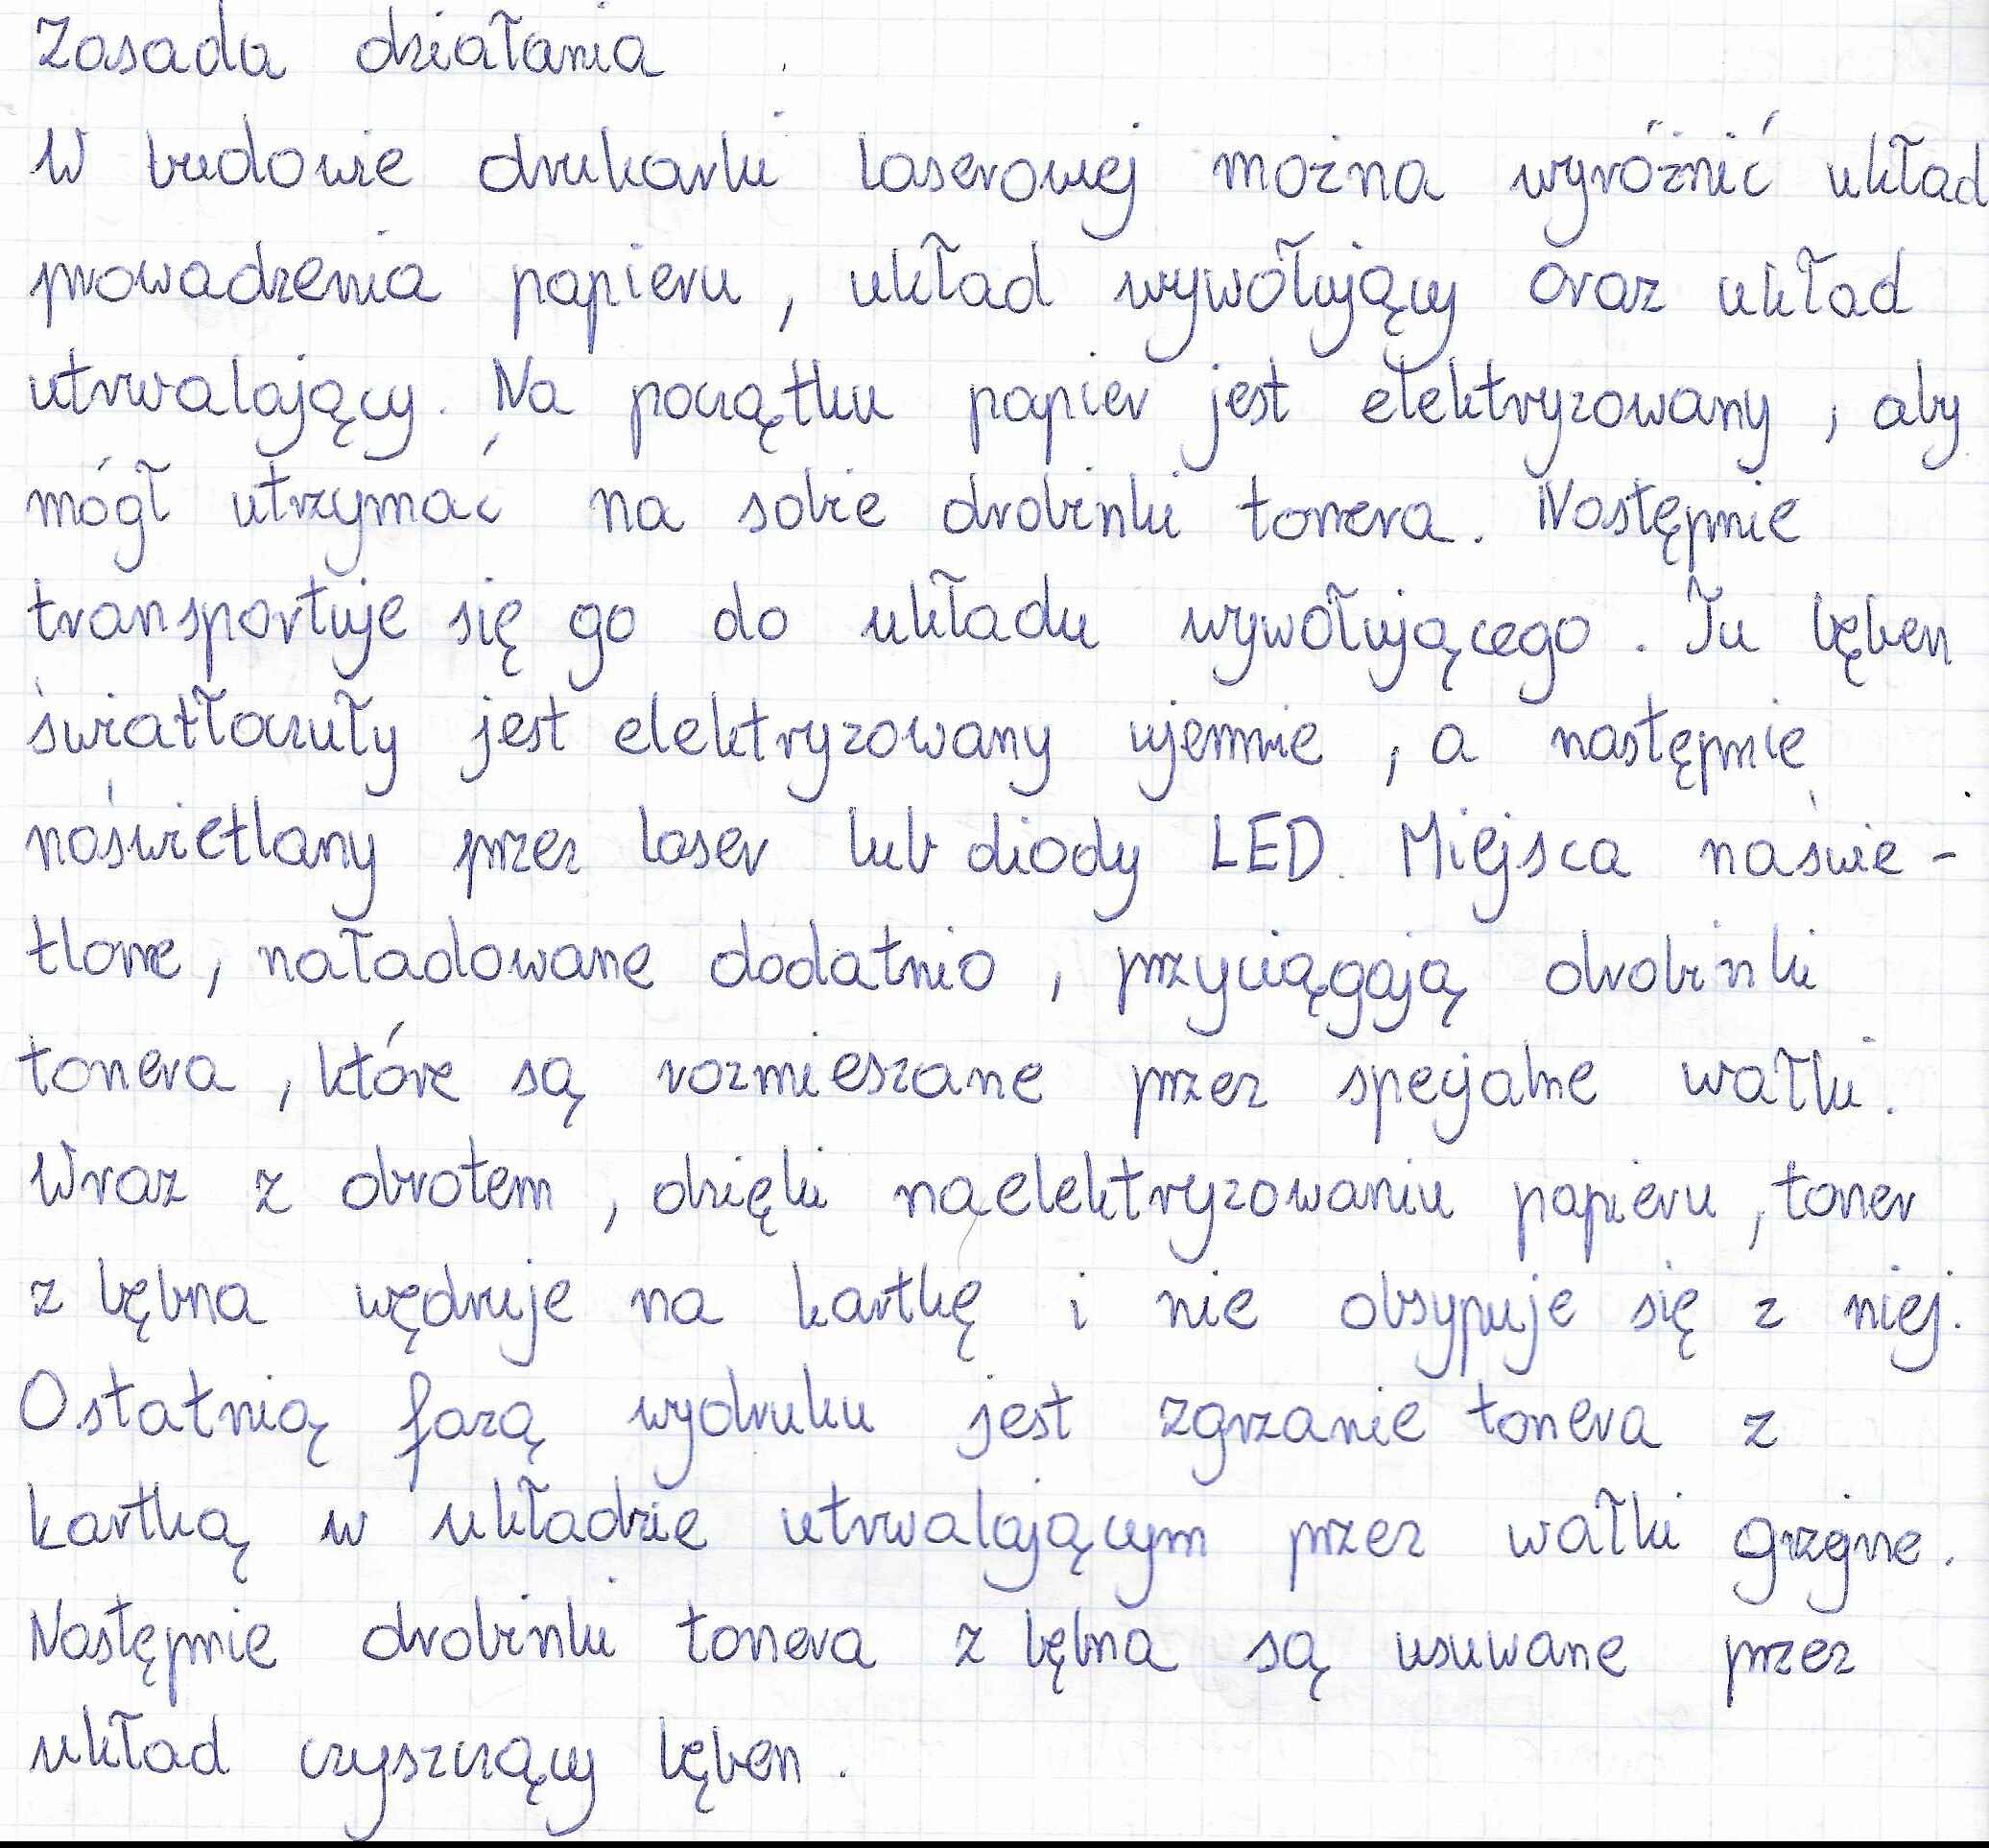 Zasada działania
W budowie drukarki laserowej można wyróżnić układ
prowadzenia papieru, układ wywołujący oraz układ
utrwalający. Na początku papier jest elektryzowany, aby
mógł utrzymać na sobie drobinki tonera. Następnie
transportuje się go do układu wywołującego. Tu bęben
światłoczuły jest elektryzowany ujemnie, a następnie
naświetlany przez laser lub diody LED. Miejsca naświe-
tlone, naładowane dodatnio, przyciągają drobinki
tonera, które są rozmieszane przez specjalne wałki.
Wraz z obrotem, dzięki naelektryzowaniu papieru, toner
z bębna wędruje na kartkę i nie obsypuje się z niej.
Ostatnią fazą wydruku jest zgrzanie tonera z
kartką w układzie utrwalającym przez wałki grzejne.
Następnie drobinki tonera z bębna są usuwane przez
układ czyszczący bęben.